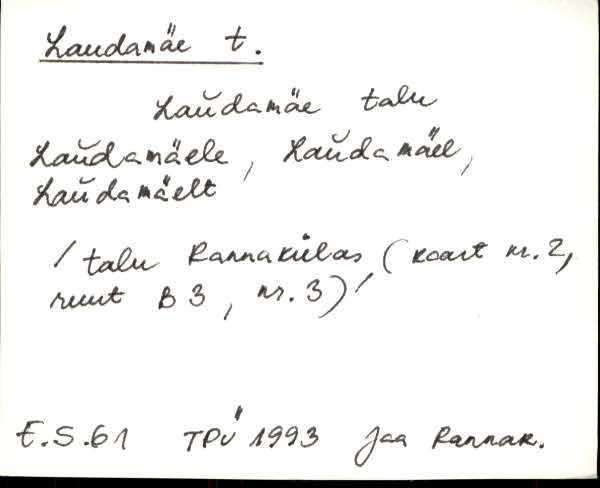 Laudamäe t.
Laŭdamäe talu
Laŭdamäele, Laŭdamäel,
Laŭdamäelt
/talu Rannakülas (kaart nr. 2,
ruut B3, nr. 3)/
E.S.61 TPÜ 1993 Jaa Rannak.